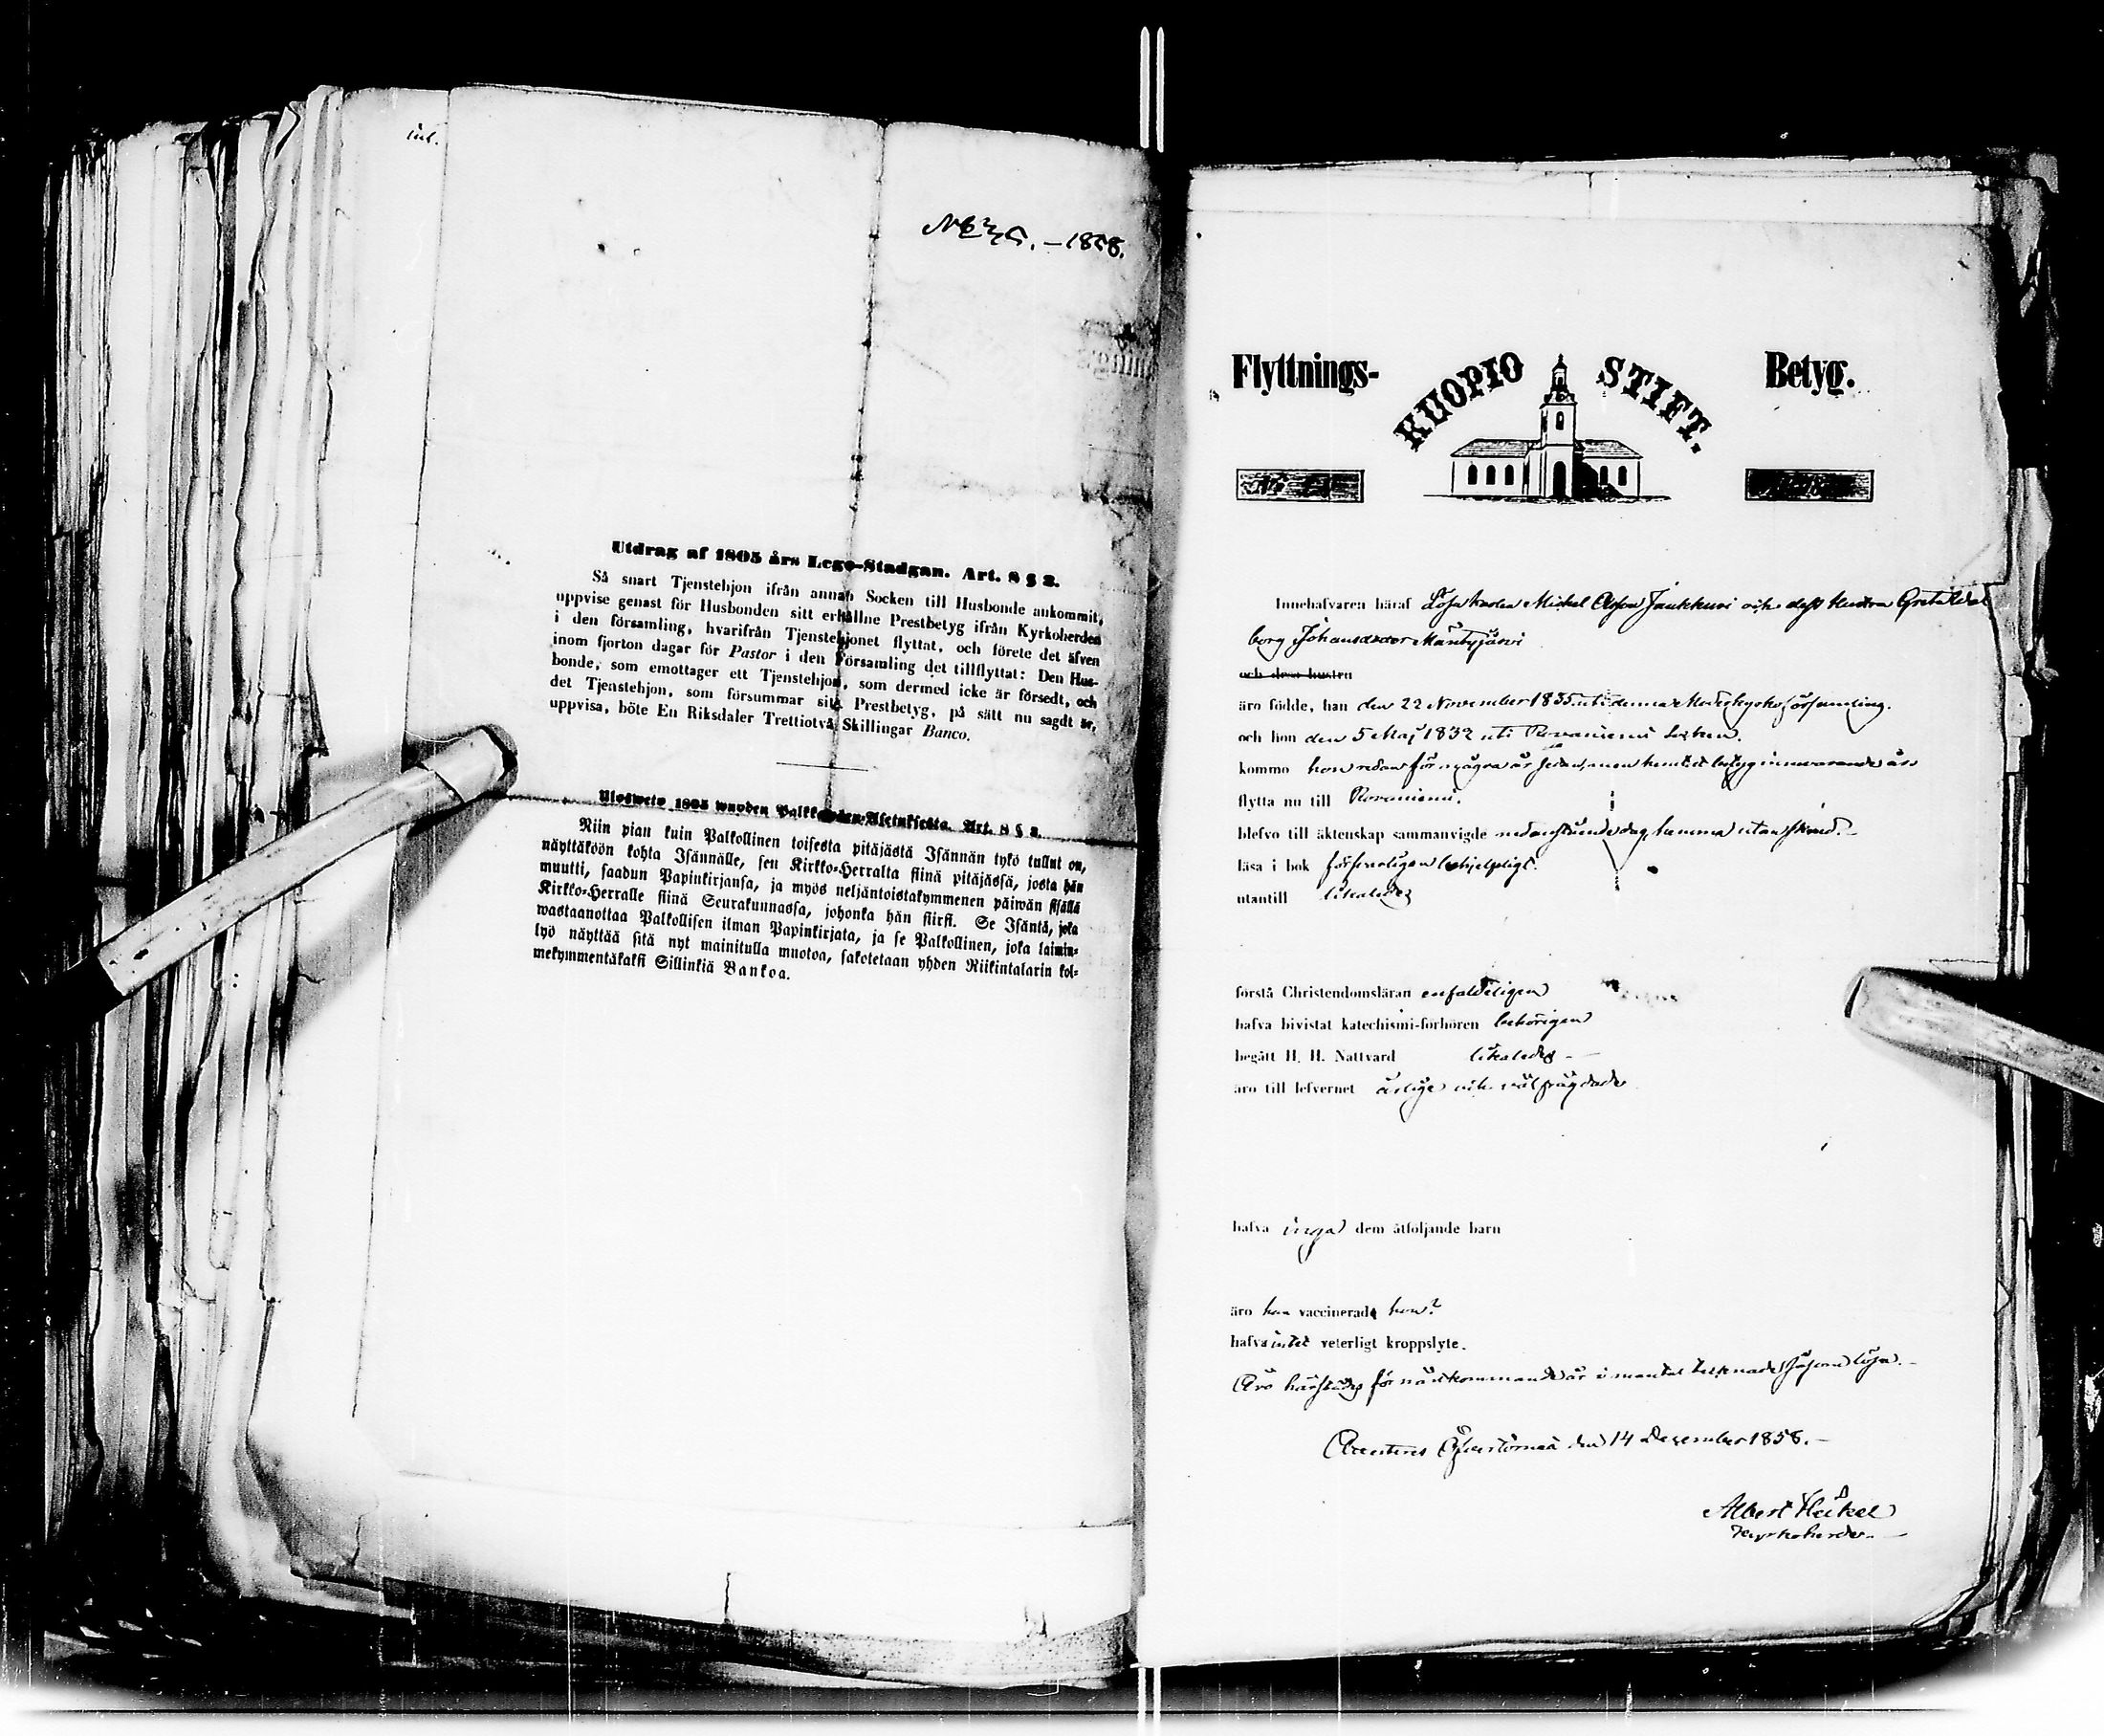 inl.
1858.
Utdrag af 1805 års Lego-Stadgan. Art. 8 § 2.
Så snart Tjenstehjon ifrån annan Socken till Husbonde ankommit,
uppvise genast för Husbonden sitt erhållne Prestbetyg ifrån Kyrkoherden
i den församling, hvarifrån Tjenstehjonet flyttat, och förete det äfven
inom fjorton dagar för Pastor i den Församling det tillflyttat: Den Hus-
bonde, som emottager ett Tjenstehjon, som dermed icke är försedt, och
det Tjenstehjon, som försummar sitt Prestbetyg, på sätt nu sagdt är,
uppvisa, böte En Riksdaler Trettiotvå Skillingar Banco.
Ulosweto 1805 wuoden Palkkollisten-Asetuksesta. Art. 8 § 2.
Niin pian kuin Palkollinen toisesta pitäjästä Isännän tykö tullut on,
näyttäköön kohta Isännälle, sen Kirkko-Herralta siinä pitäjässä, josta hän
muutti, saadun Papinkirjansa, ja myös neljäntoistakymmenen päiwän sisällä
Kirkko-Herralle siinä Seurakunnassa, johonka hän siirsi. Se Isäntä, joka
wastaanottaa Palkollisen ilman Papinkirjata, ja se Palkollinen, joka laimin-
lyö näyttää sitä nyt mainitulla muotoa, sakotetaan yhden Riikintalarin kol-
mekymmentäkaksi Sillinkiä Bankoa.
Flyttnings- KUOPIO STIFT. Betyg.
Innehafvaren häraf Lösa karlen Mickel Olofson Jaukkuri och dess Hustru Greta Wal
borg Johansdotter Mäntyjärvi
och dess hustru
äro födde, han den 22 November 1835 uti denna Moderkyrkoförsamling.
och hon den 5 Maj 1832 uti Rovaniemi Socken.
kommo hon redan för några år sedan, men hemtat betyg innevarande år
flytta nu till Rovaniemi.
blefvo till äktenskap sammanvigde nedanstående dag, hemma utan skrud.
läsa i bok försvarligen behjelpligt.
utantill likaledes
förstå Christendomsläran enfaldeligen
hafva bivistat katechismi-förhören behörigen
begått H. H. Nattvard likaledes
äro till lefvernet ärlige och välfrägdade
hafva inga dem åtföljande barn
äro han vaccinerade hon?
hafva intet veterligt kroppslyte.
Äro härstädes för nästkommande år i mantal tecknade såsom lösa.
Öfvertorneå den 14 December 1858.
Albert Heikel
Kyrkoherde.